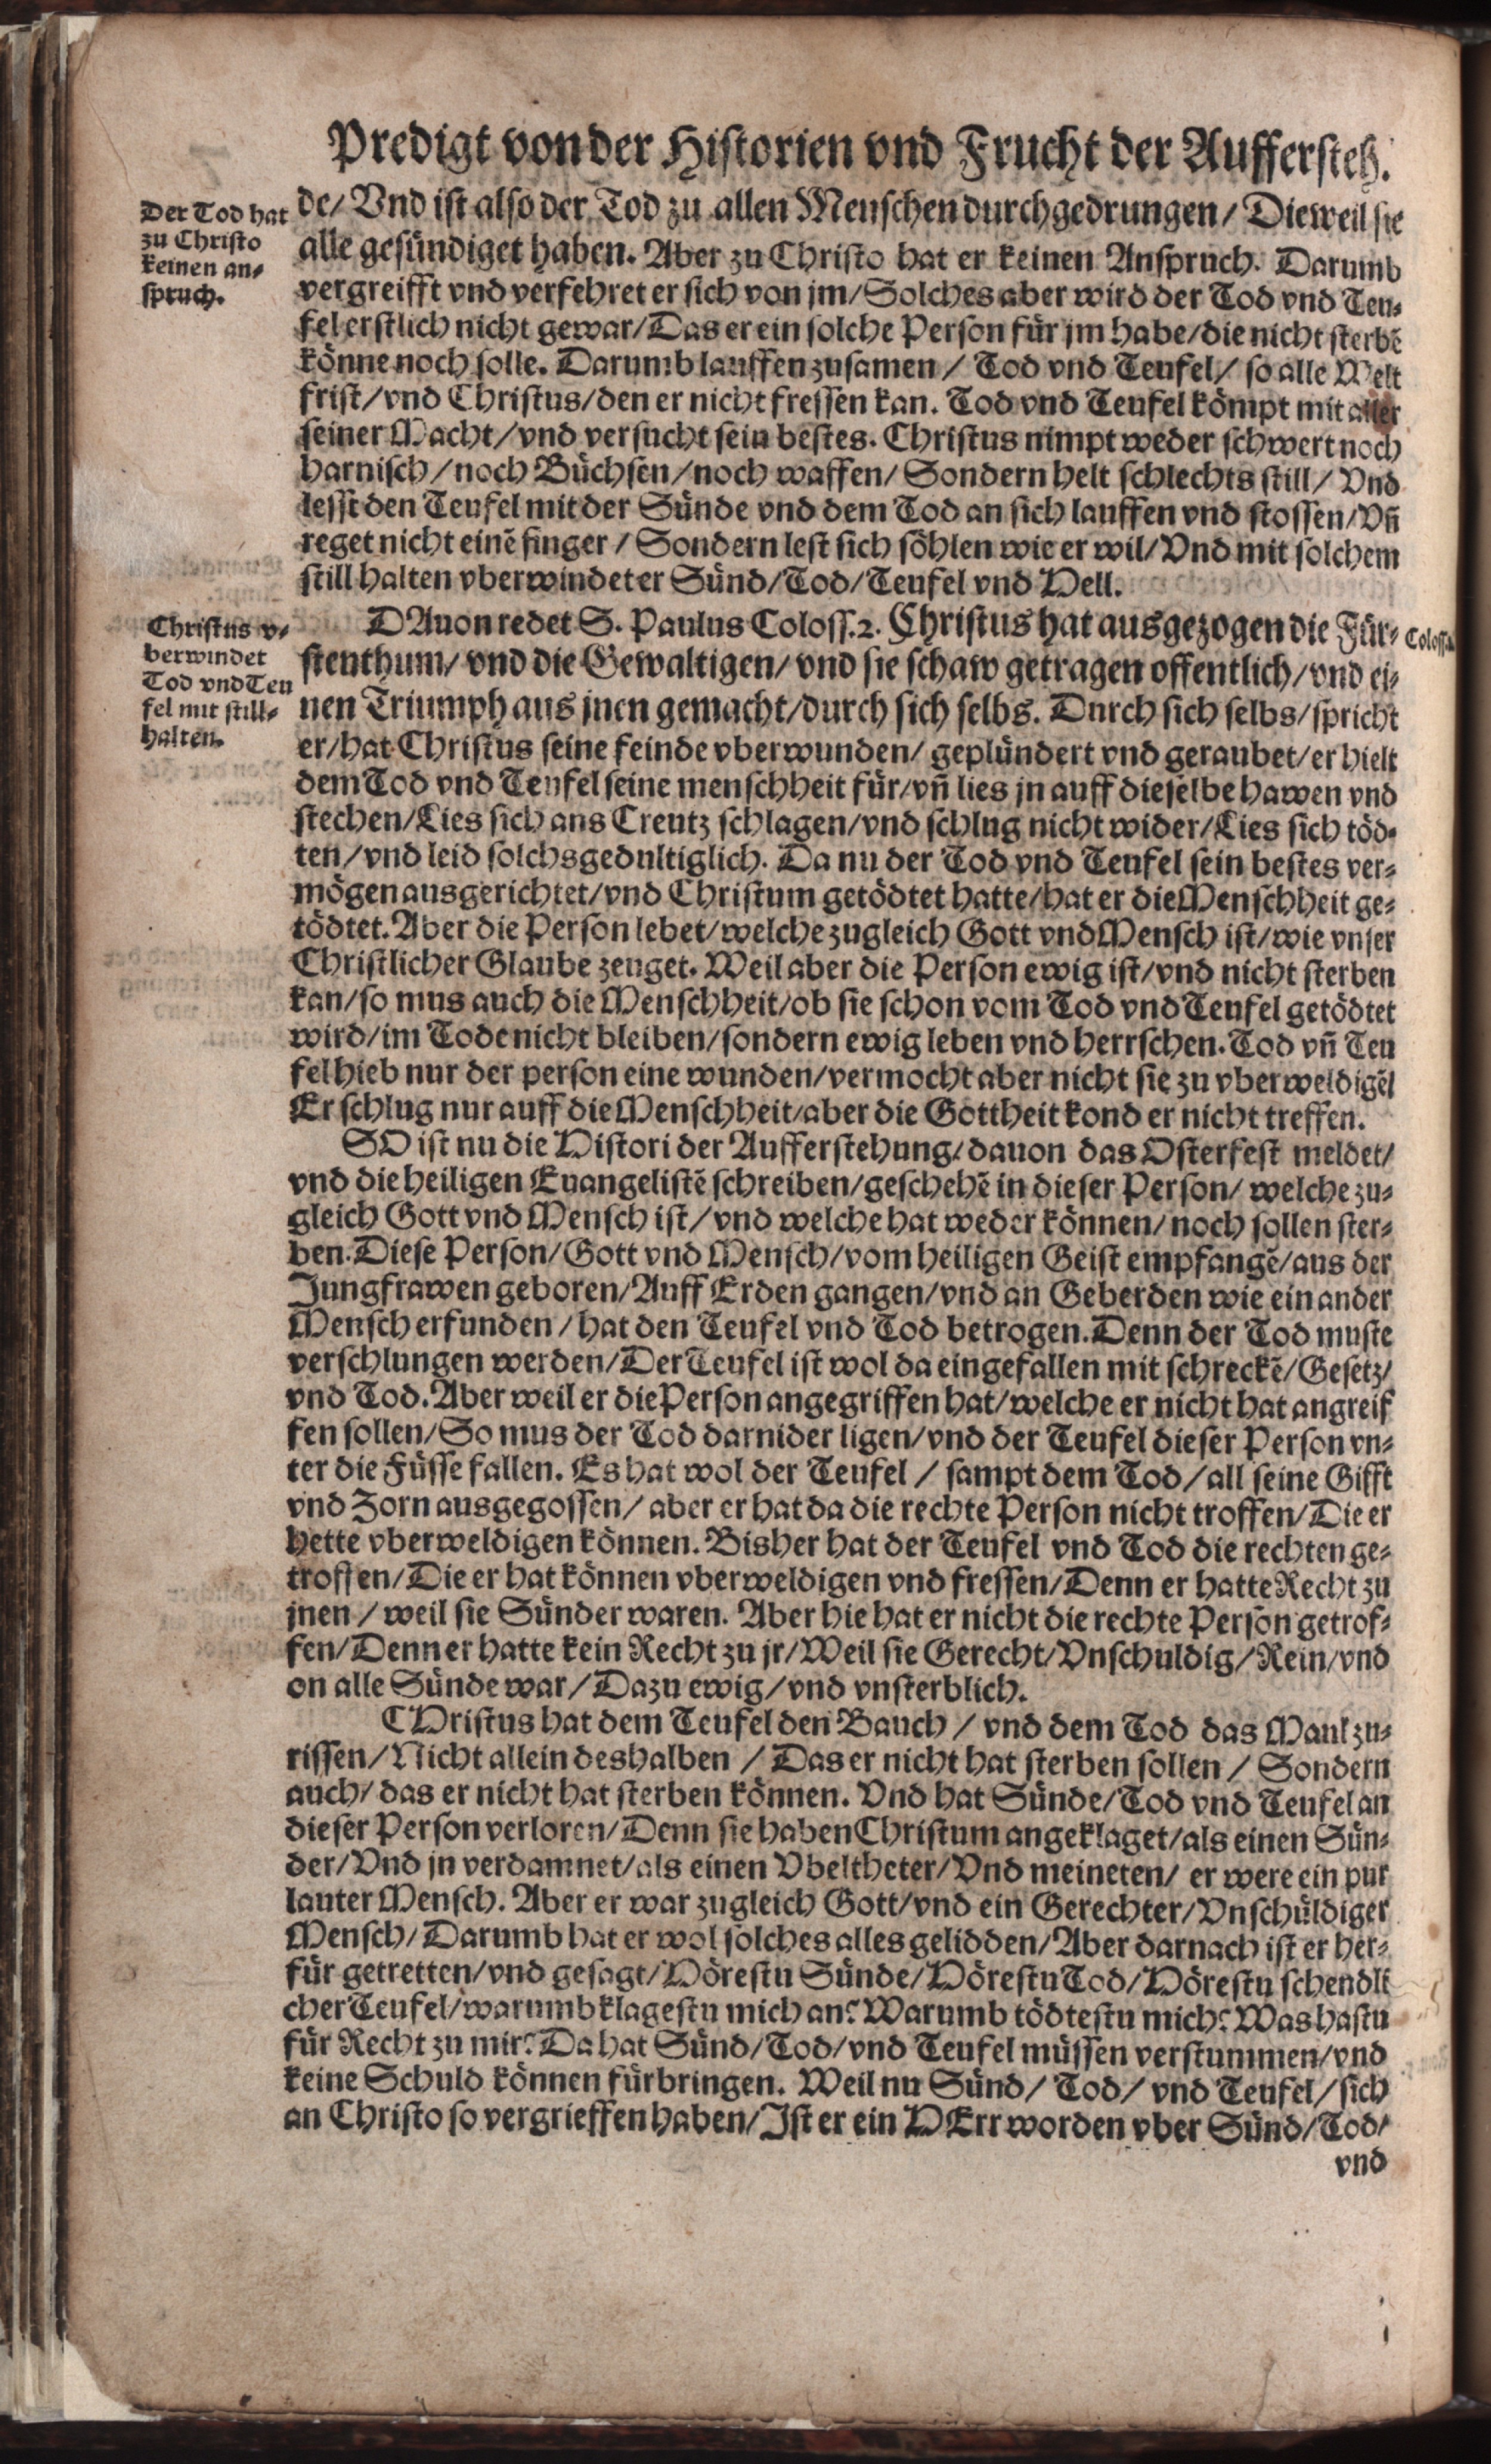 Predigt von der Historien vnd Frucht der Auffersteh.
Der Tod hat
zu Christo
keinen an-
spruch.
de/ Vnd ist also der Tod zu allen Menschen durchgedrungen/ Dieweil sie
alle gesündiget haben. Aber zu Christo hat er keinen Anspruch. Darumb
vergreifft vnd verfehret er sich von jm/ Solches aber wird der Tod vnd Teu-
fel erstlich nicht gewar/ Das er ein solche Person für jm habe/ die nicht sterbē
könne noch solle. Darumb lauffen zusamen/ Tod vnd Teufel/ so alle Welt
frist/ vnd Christus/ den er nicht fressen kan. Tod vnd Teufel kömpt mit aller
seiner Macht/ vnd versucht sein bestes. Christus nimpt weder schwert noch
harnisch/ noch Büchsen/ noch waffen/ Sondern helt schlechts still/ Vnd
lesst den Teufel mit der Sünde vnd dem Tod an sich lauffen vnd stossen/ Vn̄
reget nicht einē finger/ Sondern lest sich söhlen wie er wil/ Vnd mit solchem
still halten vberwindet er Sünd/ Tod/ Teufel vnd Hell.
Christus v-
berwindet
Tod vnd Teu
fel mit still-
halten.
DAuon redet S. Paulus Coloss. 2. Christus hat ausgezogen die Für-
Coloss.
stenthum/ vnd die Gewaltigen/ vnd sie schaw getragen offentlich/ vnd ei-
nen Triumph aus jnen gemacht/ durch sich selbs. Durch sich selbs/ spricht
er/ hat Christus seine feinde vberwunden/ geplündert vnd geraubet/ er hielt
dem Tod vnd Teufel seine menschheit für/ vn̄ lies jn auff dieselbe hawen vnd
stechen/ Lies sich ans Creutz schlagen/ vnd schlug nicht wider/ Lies sich töd-
ten/ vnd leid solchs gedultiglich. Da nu der Tod vnd Teufel sein bestes ver-
mögen ausgerichtet/ vnd Christum getödtet hatte/ hat er die Menschheit ge-
tödtet. Aber die Person lebet/ welche zugleich Gott vnd Mensch ist/ wie vnser
Christlicher Glaube zeuget. Weil aber die Person ewig ist/ vnd nicht sterben
kan/ so mus auch die Menschheit/ ob sie schon vom Tod vnd Teufel getödtet
wird/ im Tode nicht bleiben/ sondern ewig leben vnd herrschen. Tod vn̄ Teu
fel hieb nur der person eine wunden/ vermocht aber nicht sie zu vberweldigē/
Er schlug nur auff die Menschheit/ aber die Gottheit kond er nicht treffen.
SO ist nu die Histori der Aufferstehung/ dauon das Osterfest meldet/
vnd die heiligen Euangelistē schreiben/ geschehē in dieser Person/ welche zu-
gleich Gott vnd Mensch ist/ vnd welche hat weder können/ noch sollen ster-
ben. Diese Person/ Gott vnd Mensch/ vom heiligen Geist empfangē/ aus der
Jungfrawen geboren/ Auff Erden gangen/ vnd an Geberden wie ein ander
Mensch erfunden/ hat den Teufel vnd Tod betrogen. Denn der Tod muste
verschlungen werden/ Der Teufel ist wol da eingefallen mit schreckē/ Gesetz/
vnd Tod. Aber weil er die Person angegriffen hat/ welche er nicht hat angreif
fen sollen/ So mus der Tod darnider ligen/ vnd der Teufel dieser Person vn-
ter die Füsse fallen. Es hat wol der Teufel/ sampt dem Tod/ all seine Gifft
vnd Zorn ausgegossen/ aber er hat da die rechte Person nicht troffen/ Die er
hette vberweldigen können. Bisher hat der Teufel vnd Tod die rechten ge-
troffen/ Die er hat können vberweldigen vnd fressen/ Denn er hatte Recht zu
jnen/ weil sie Sünder waren. Aber hie hat er nicht die rechte Person getrof-
fen/ Denn er hatte kein Recht zu jr/ Weil sie Gerecht/ Vnschuldig/ Rein/ vnd
on alle Sünde war/ Dazu ewig/ vnd vnsterblich.
CHristus hat dem Teufel den Bauch/ vnd dem Tod das Maul zu-
rissen/ Nicht allein deshalben/ Das er nicht hat sterben sollen/ Sondern
auch/ das er nicht hat sterben können. Vnd hat Sünde/ Tod vnd Teufel an
dieser Person verloren/ Denn sie haben Christum angeklaget/ als einen Sün-
der/ Vnd jn verdamnet/ als einen Vbeltheter/ Vnd meineten/ er were ein pur
lauter Mensch. Aber er war zugleich Gott/ vnd ein Gerechter/ Vnschüldiger
Mensch/ Darumb hat er wol solches alles gelidden/ Aber darnach ist er her-
für getretten/ vnd gesagt/ Hörestu Sünde/ Hörestu Tod/ Hörestu schendli
cher Teufel/ warumb klagestu mich an? Warumb tödtestu mich? Was hastu
für Recht zu mir? Da hat Sünd/ Tod/ vnd Teufel müssen verstummen/ vnd
keine Schuld können fürbringen. Weil nu Sünd/ Tod/ vnd Teufel/ sich
an Christo so vergrieffen haben/ Ist er ein HErr worden vber Sünd/ Tod/
vnd